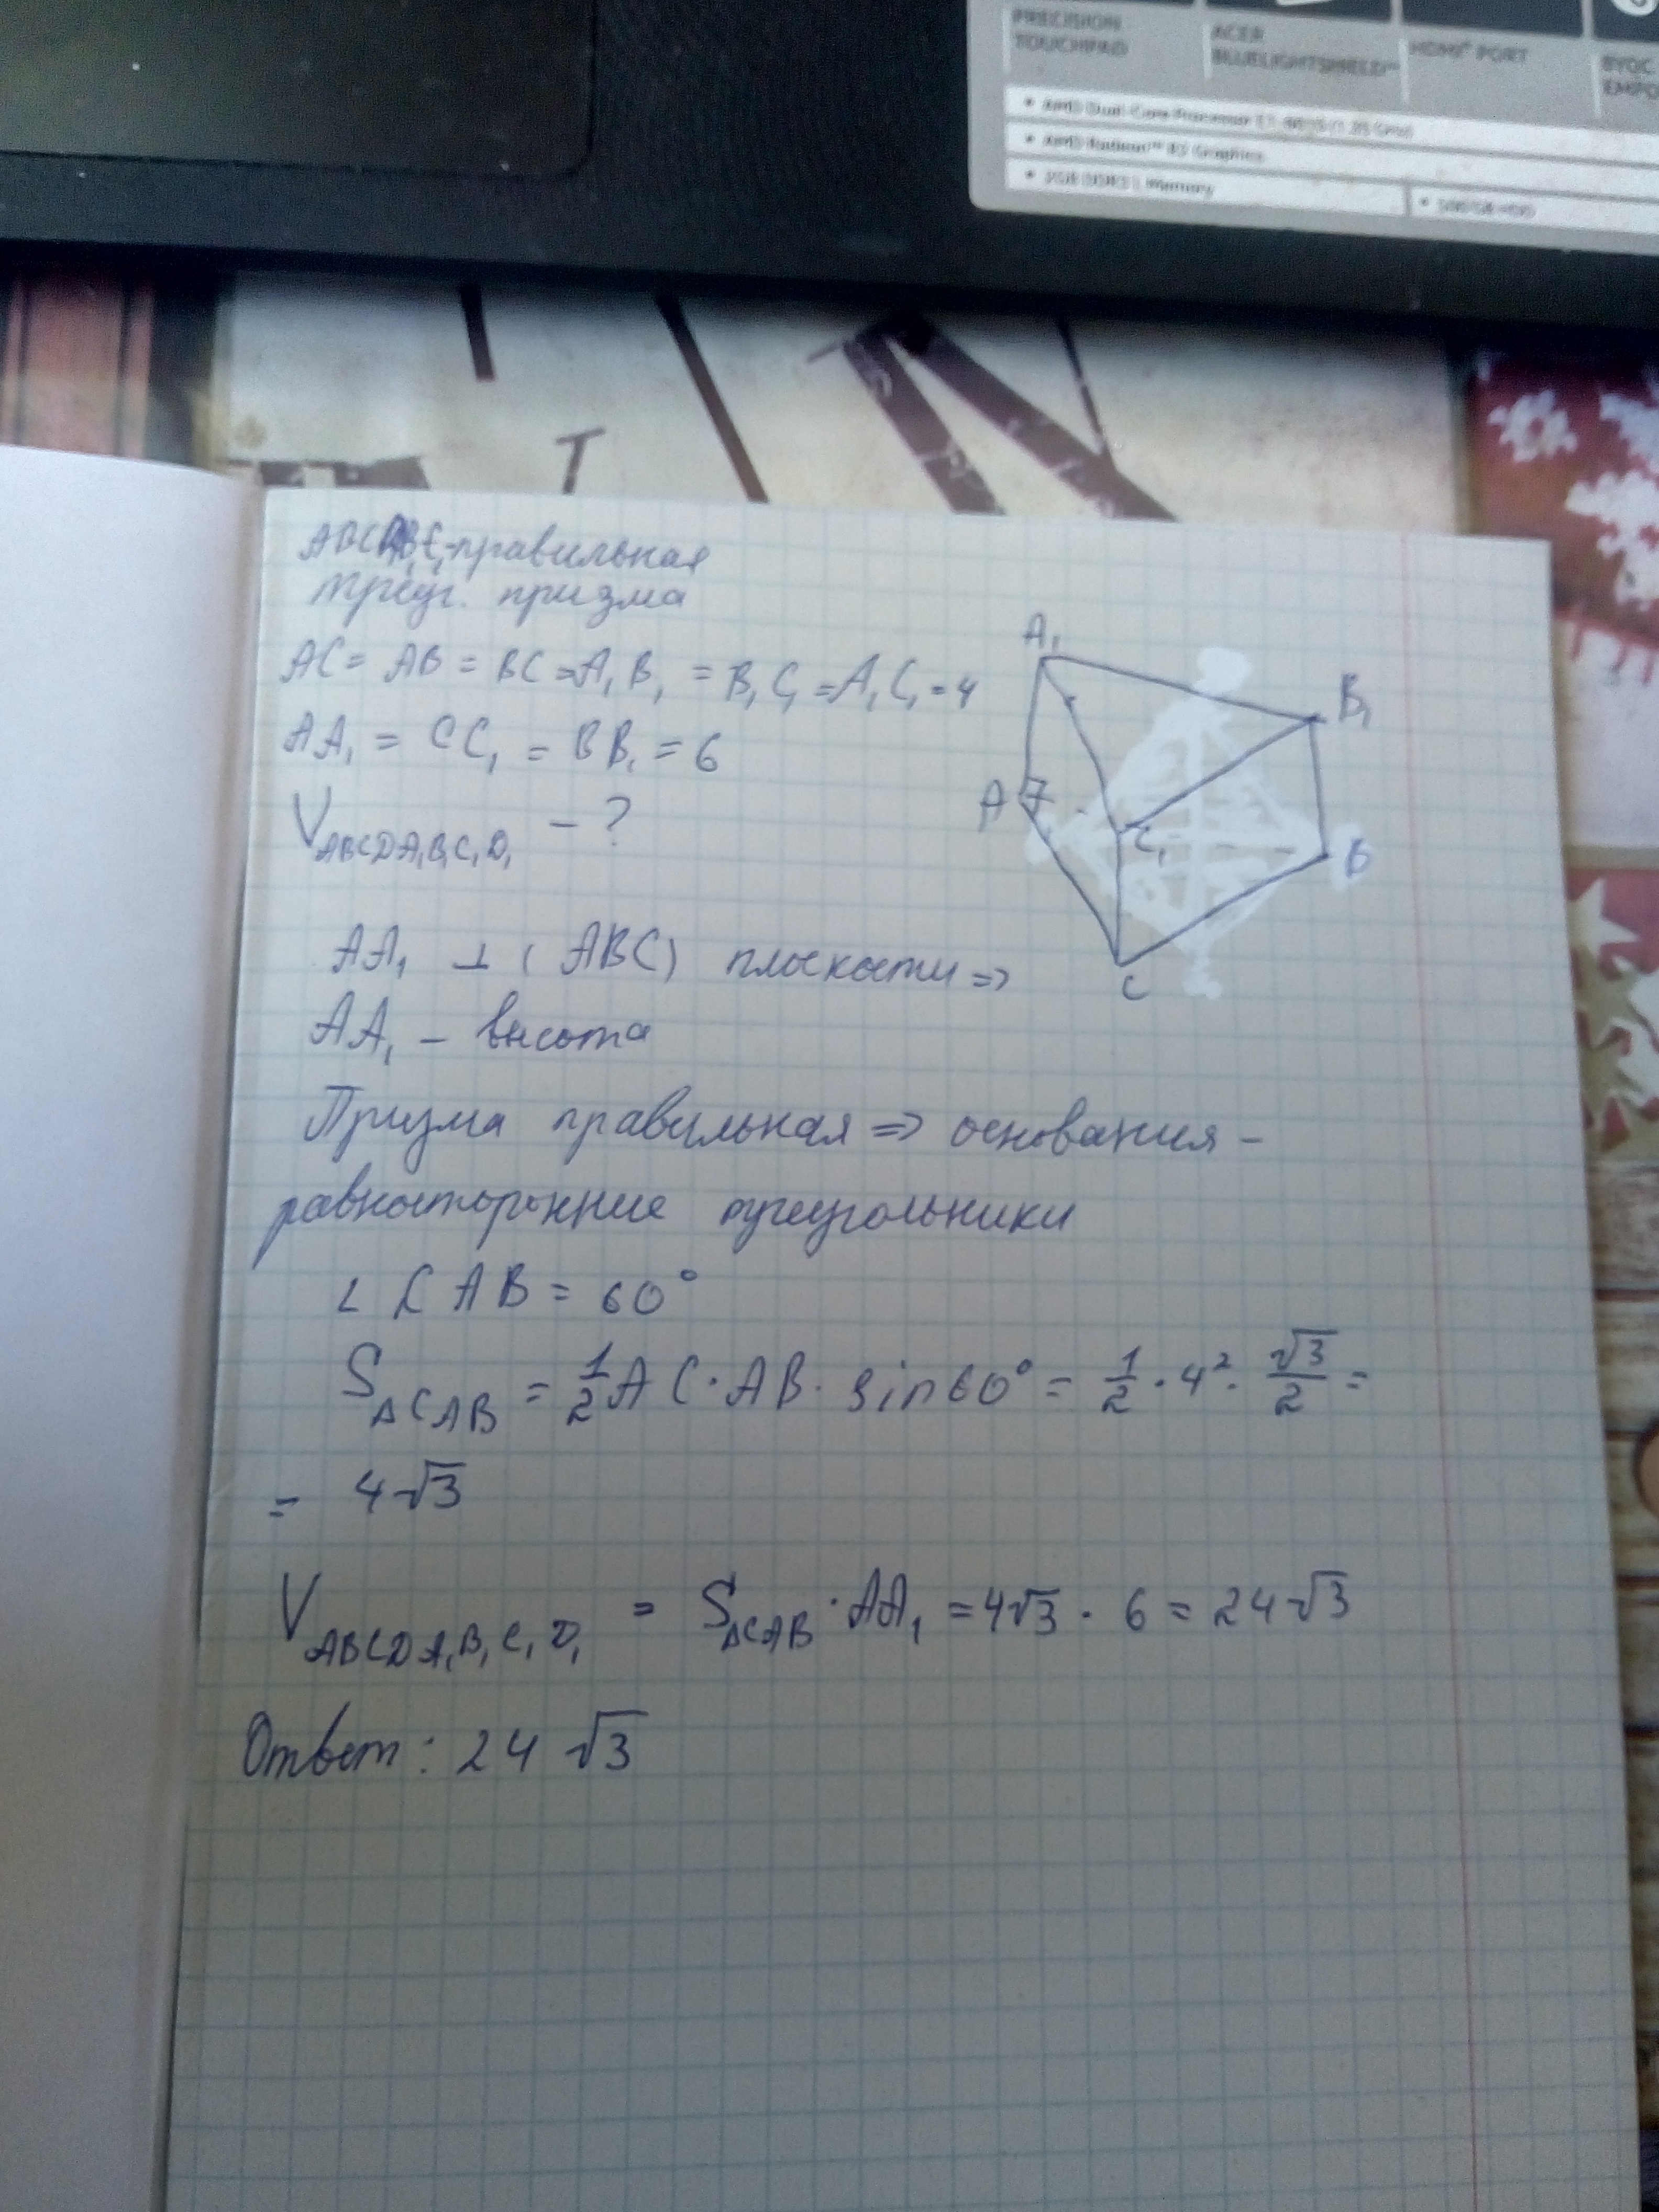 PRECISION
TOUCHPAD
ACER
BLUELIGHTSHIELD™
HDMI® PORT
• AMD Radeon™ R2 Graphics
ABCA₁B₁C₁-правильная
треуг. призма
AC = AB = BC = A₁B₁ = B₁C₁ = A₁C₁ = 4
AA₁ = CC₁ = BB₁ = 6
V ABCDA₁B₁C₁D₁ - ?
A₁
B₁
A
C₁
B
C
AA₁ ⊥ (ABC) плоскости =>
AA₁ - высота
Призма правильная => основания -
равносторонние треугольники
∠ CAB = 60°
S △CAB = 1/2 AC · AB · sin60° = 1/2 · 4² · √3/2 =
= 4√3
V ABCDA₁B₁C₁D₁ = S △CAB · AA₁ = 4√3 · 6 = 24√3
Ответ: 24 √3